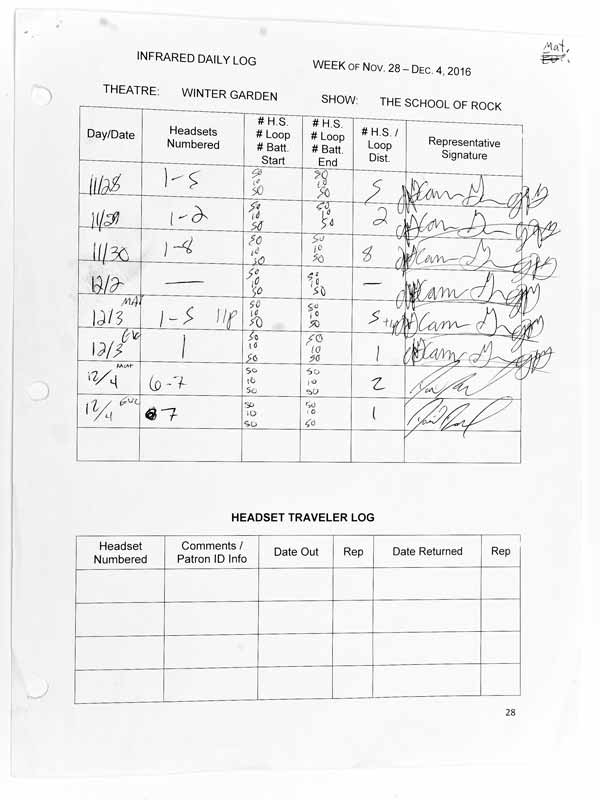 Mat.
INFRARED DAILY LOG WEEK OF NOV. 28 – DEC. 4, 2016
THEATRE: WINTER GARDEN SHOW: THE SCHOOL OF ROCK
Day/Date Headsets Numbered # H.S. # Loop # Batt. Start # H.S. # Loop # Batt. End # H.S. / Loop Dist. Representative Signature
11/28 1-5 50 10 50 50 10 50 5
11/29 1-2 50 10 50 50 10 50 2
11/30 1-8 50 10 50 50 10 50 8
12/2 — 50 10 50 50 10 50 —
12/3 MAT 1-5 11p 50 10 50 50 10 50 5
12/3 EVE 1 50 10 50 50 10 50 1
12/4 MAT 6-7 50 10 50 50 10 50 2
12/4 EVE 7 50 10 50 50 10 50 1
HEADSET TRAVELER LOG
Headset Numbered Comments / Patron ID Info Date Out Rep Date Returned Rep
28